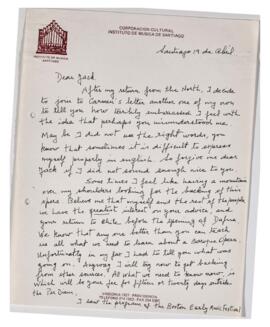 CORPORACION CULTURAL
INSTITUTO DE MUSICA DE SANTIAGO
Santiago 19 de Abril
Dear Jack.
After my return from the North, I decide
to join to Carmen's letter another one of my own
to tell you how terribly embarrassed I feel with
the idea that perhaps you misunderstood me.
May be I did not use the right words, you
know that sometimes it is difficult to express
myself properly in english. So forgive me dear
Jack if I did not sound enough nice to you.
Some times I feel like having a mountain
over my shoulders looking for the backing of this
opera. Believe me that myself and the rest of the people
we have the greatest interest on your advice, and
your return to Chile before the opening of Dafne
We know that any one better than you can teach
us all what we need to learn about a baroque Opera.
Unfortunately in my fax I had to tell you what was
going on. Anyway I will try now to get backing
from other sources. All what we need to know now, is
which will be your fee for fifteen or twenty days outside
the Per Diem.
I saw the program of the Boston Early Music Festival